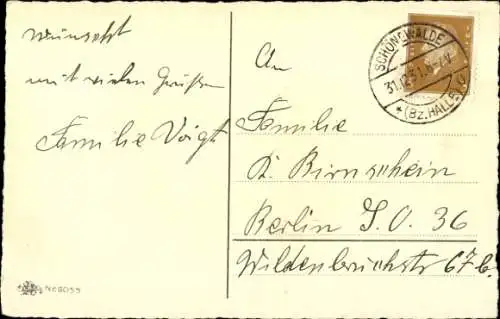 wünscht
mit vielen Grüßen
Familie Voigt
SCHÖNEWALDE
31.12.31.
* (Bz. HALLE)
An
Familie
R. Birnschein
Berlin S.O. 36
Wildenbruchstr 67 b.